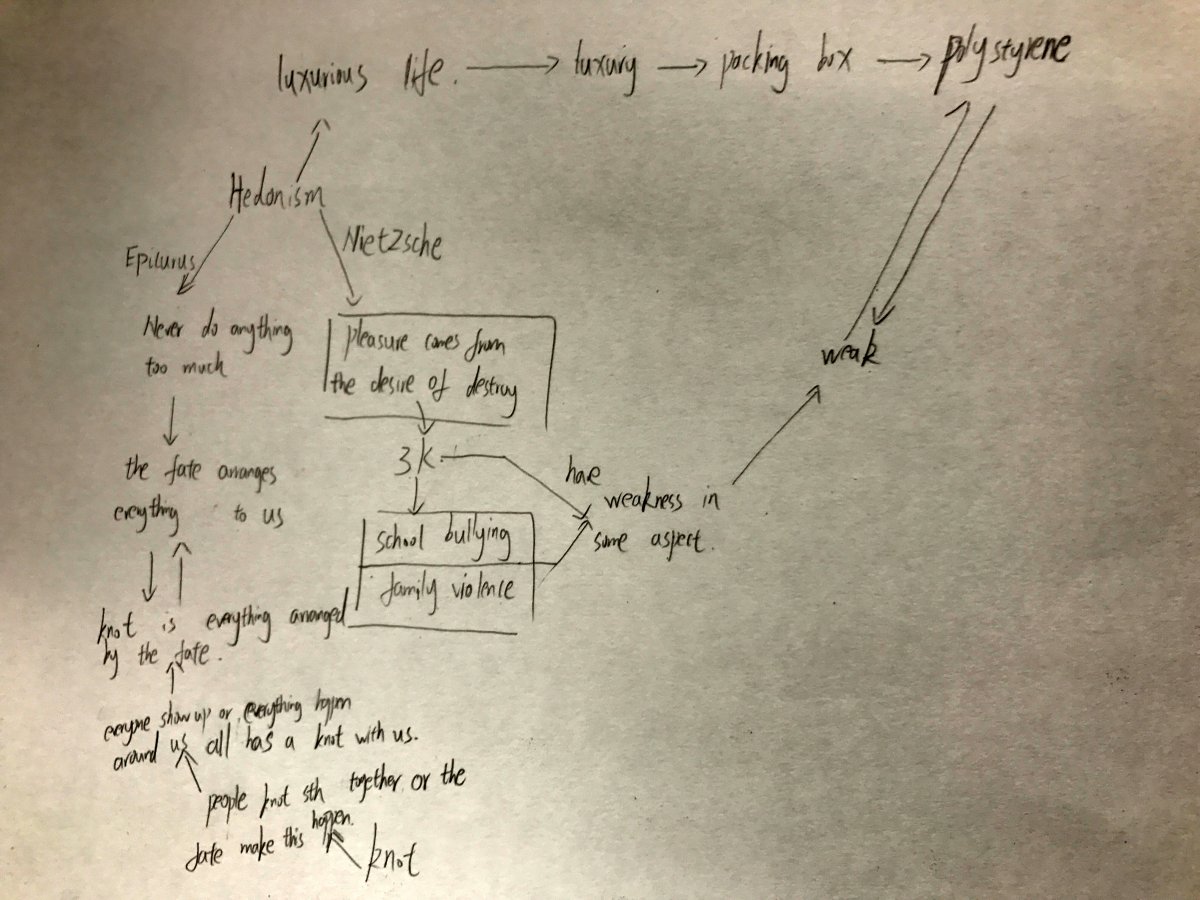 luxurious life. → luxury → packing box → polystyrene
Hedonism
Epicurus
Nietzsche
Never do anything
too much
pleasure comes from
the desire of destroy
weak
the fate arranges
everything to us
3K
have
weakness in
some aspect.
school bullying
family violence
knot is everything arranged
by the fate.
everyone show up or everything happen
around us all has a knot with us.
people knot sth together or the
fate make this happen.
knot